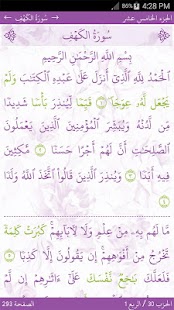 4:28 PM
الجزء الخامس عشر
سُورَةُ الكَهْفِ
سُورَةُ الكَهْفِ
بِسْمِ اللَّهِ الرَّحْمَٰنِ الرَّحِيمِ
ٱلْحَمْدُ لِلَّهِ ٱلَّذِىٓ أَنزَلَ عَلَىٰ عَبْدِهِ ٱلْكِتَٰبَ وَلَمْ
يَجْعَل لَّهُۥ عِوَجَا ۜ ۝١ قَيِّمًا لِّيُنذِرَ بَأْسًا شَدِيدًا
مِّن لَّدُنْهُ وَيُبَشِّرَ ٱلْمُؤْمِنِينَ ٱلَّذِينَ يَعْمَلُونَ
ٱلصَّٰلِحَٰتِ أَنَّ لَهُمْ أَجْرًا حَسَنًا ۝٢ مَّٰكِثِينَ فِيهِ
أَبَدًا ۝٣ وَيُنذِرَ ٱلَّذِينَ قَالُوا۟ ٱتَّخَذَ ٱللَّهُ وَلَدًا ۝٤
مَّا لَهُم بِهِۦ مِنْ عِلْمٍ وَلَا لِـَٔابَآئِهِمْ ۚ كَبُرَتْ كَلِمَةً
تَخْرُجُ مِنْ أَفْوَٰهِهِمْ ۚ إِن يَقُولُونَ إِلَّا كَذِبًا ۝٥
فَلَعَلَّكَ بَٰخِعٌ نَّفْسَكَ عَلَىٰٓ ءَاثَٰرِهِمْ إِن لَّمْ
الحزب 30 / الربع 1
الصفحة 293